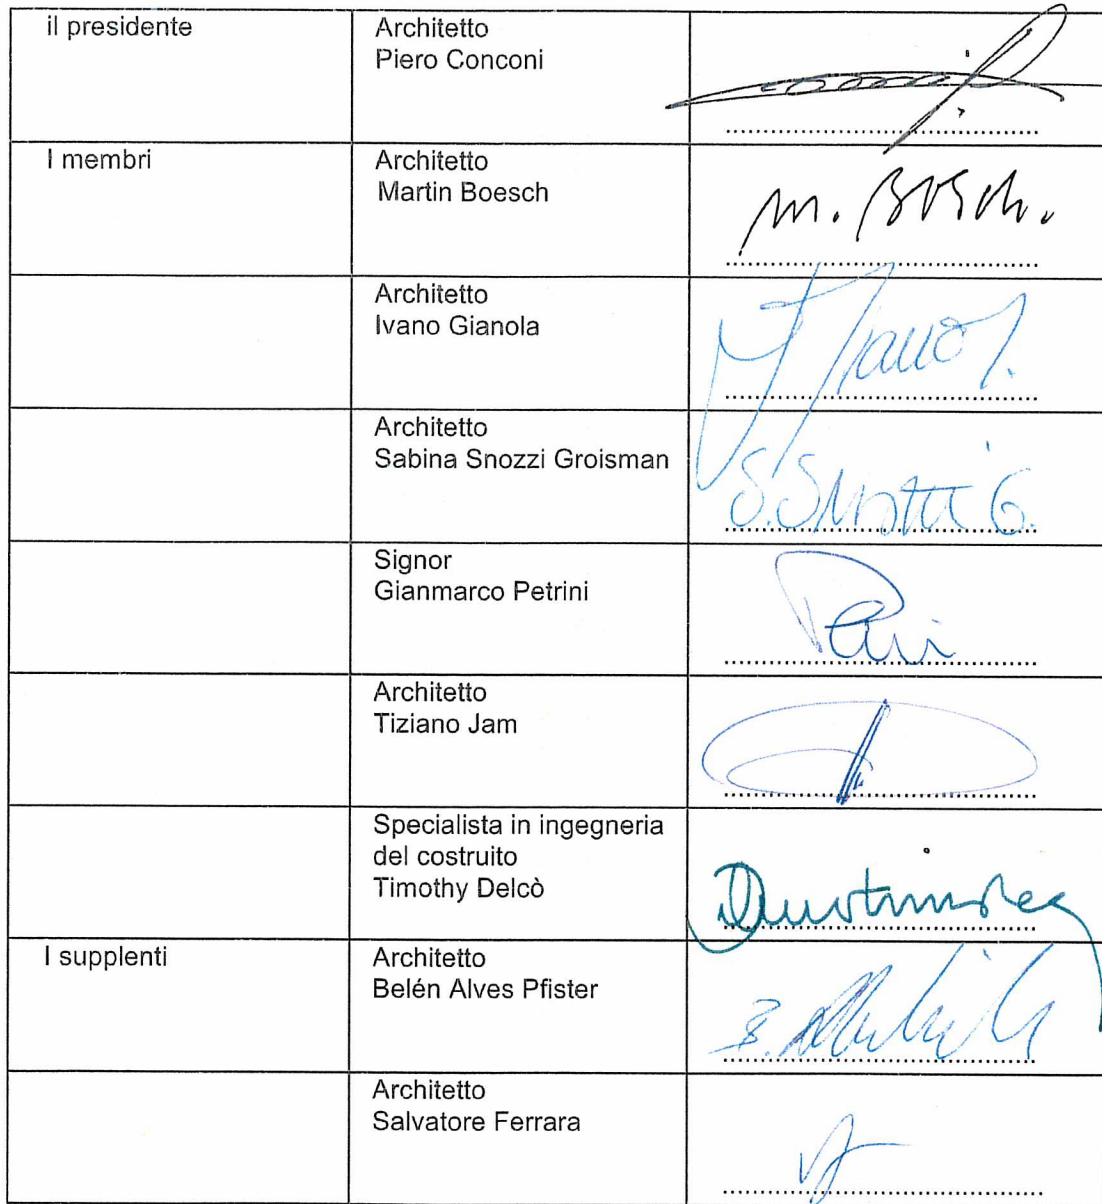 il presidente
Architetto
Piero Conconi
I membri
Architetto
Martin Boesch
M. Bosch.
Architetto
Ivano Gianola
Architetto
Sabina Snozzi Groisman
Signor
Gianmarco Petrini
Architetto
Tiziano Jam
Specialista in ingegneria
del costruito
Timothy Delcò
I supplenti
Architetto
Belén Alves Pfister
Architetto
Salvatore Ferrara